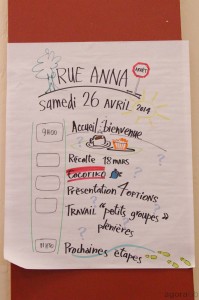 RUE ANNA
ARRÊT
samedi 26 AVRIL 2014
9H00
Accueil, bienvenue
Récolte 18 MARS
COCORIKO
Présentation 4 OPTIONS
TRAVAIL "petits groupes"
plénières
Prochaines étapes